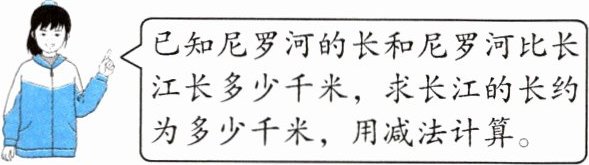 已知尼罗河的长和尼罗河比长
江长多少千米，求长江的长约
为多少千米，用减法计算。